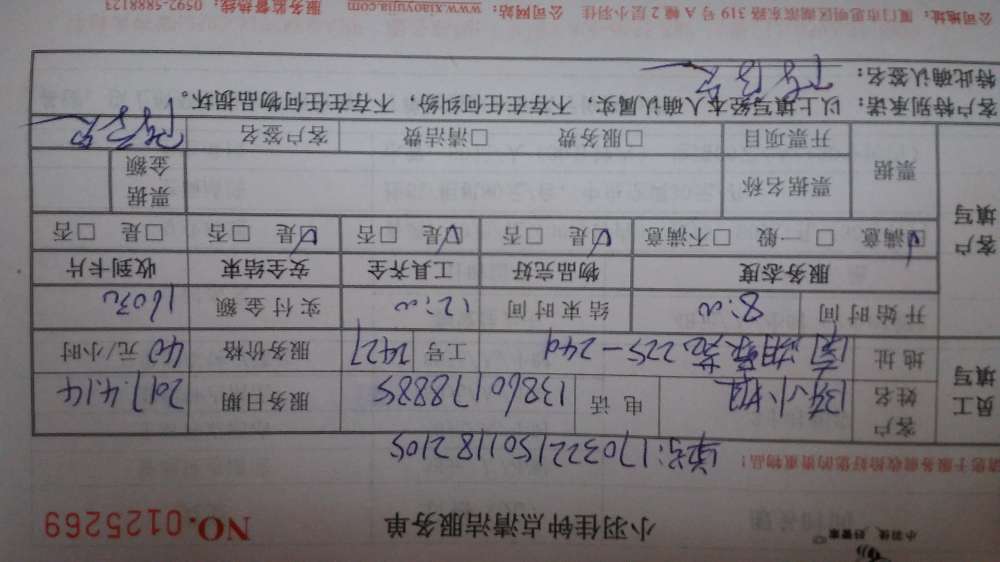 小羽佳，好管家
小羽佳钟点清洁服务单
NO.0125269
请您于服务前收拾好您的贵重物品！
单号:1703221501182105
员工填写
客户姓名 小姐 电话 13860178885 服务日期 2017.4.14
地址 225-24d 工号 2427 服务价格 40元/小时
开始时间 8:00 结束时间 12:00 实付金额 160元
客户填写
服务态度 物品完好 工具齐全 安全结束 收到卡片
☑满意 □一般 □不满意 ☑是 □否 ☑是 □否 ☑是 □否 □是 □否
票据 票据名称 票据金额
开票项目 □服务费 □清洁费 客户签名
客户特别承诺：以上填写经本人确认属实，不存在任何纠纷，不存在任何物品损坏。
特此确认签名：
公司地址：厦门市思明区湖滨东路319号A幢2层小羽佳 公司网站：www.xiaoyujia.com 服务监督热线：0592-5888123